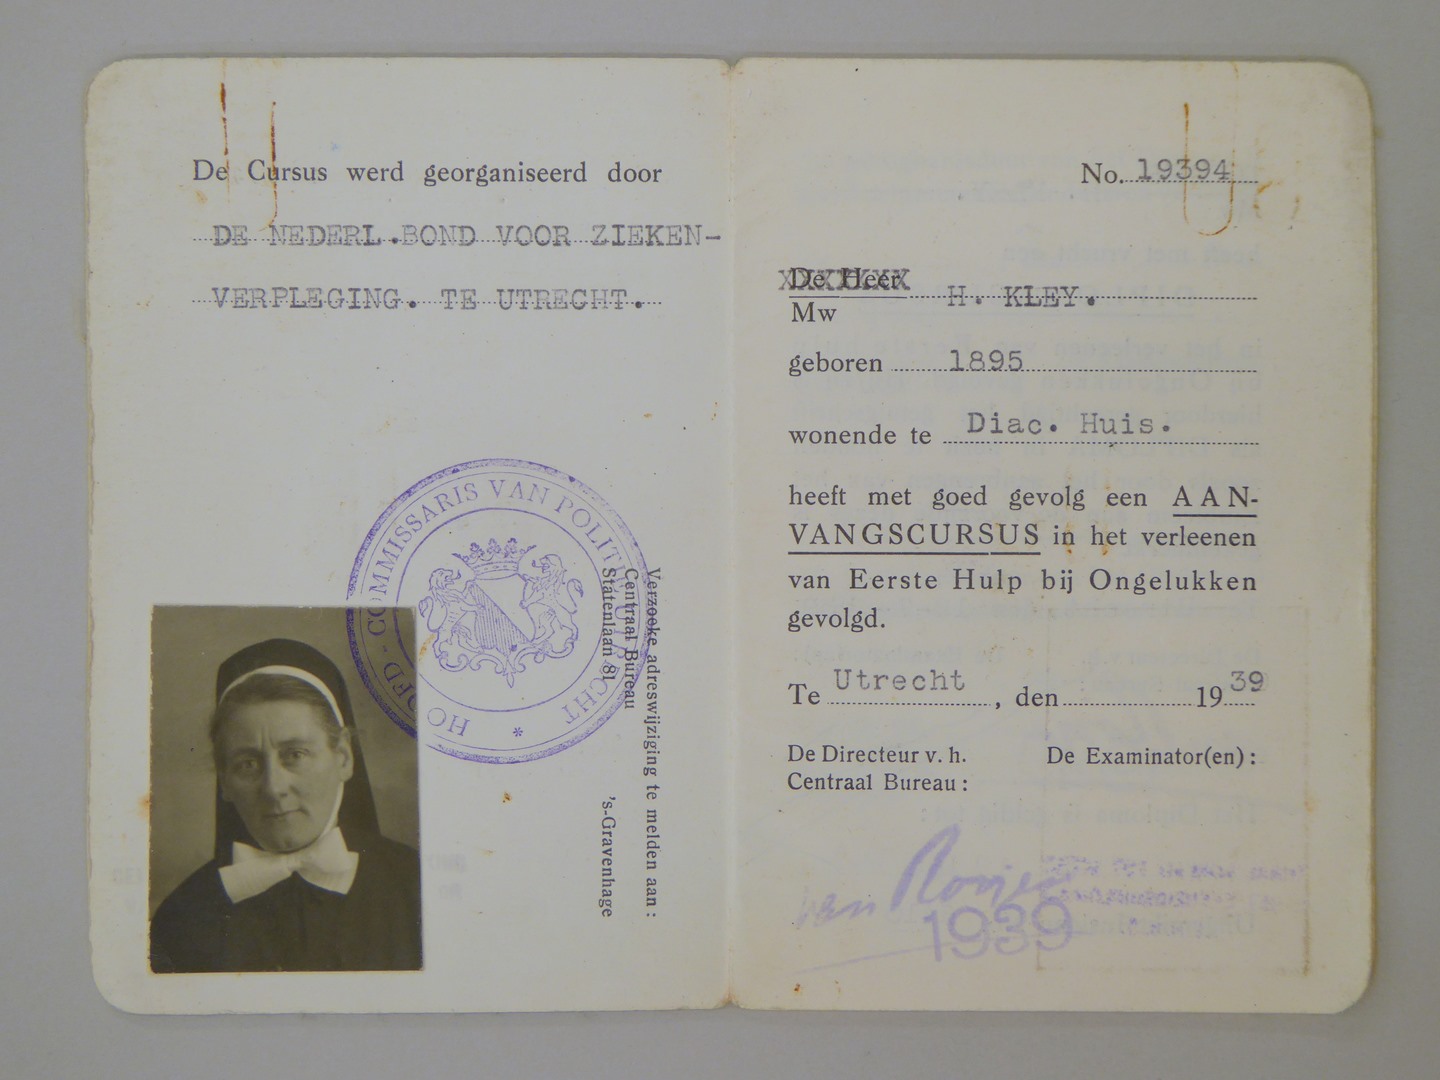 De Cursus werd georganiseerd door
DE NEDERL.BOND VOOR ZIEKEN-
VERPLEGING. TE UTRECHT.
HOOFD-COMMISSARIS VAN POLITIE UTRECHT *
Verzoeke adreswijziging te melden aan:
Centraal Bureau
Statenlaan 81
's-Gravenhage
No. 19394
De Heer
Mw H. KLEY.
geboren 1895
wonende te Diac. Huis.
heeft met goed gevolg een AAN-
VANGSCURSUS in het verleenen
van Eerste Hulp bij Ongelukken
gevolgd.
Te Utrecht, den 1939
De Directeur v. h.
Centraal Bureau:
De Examinator(en):
van Rooijen
1939